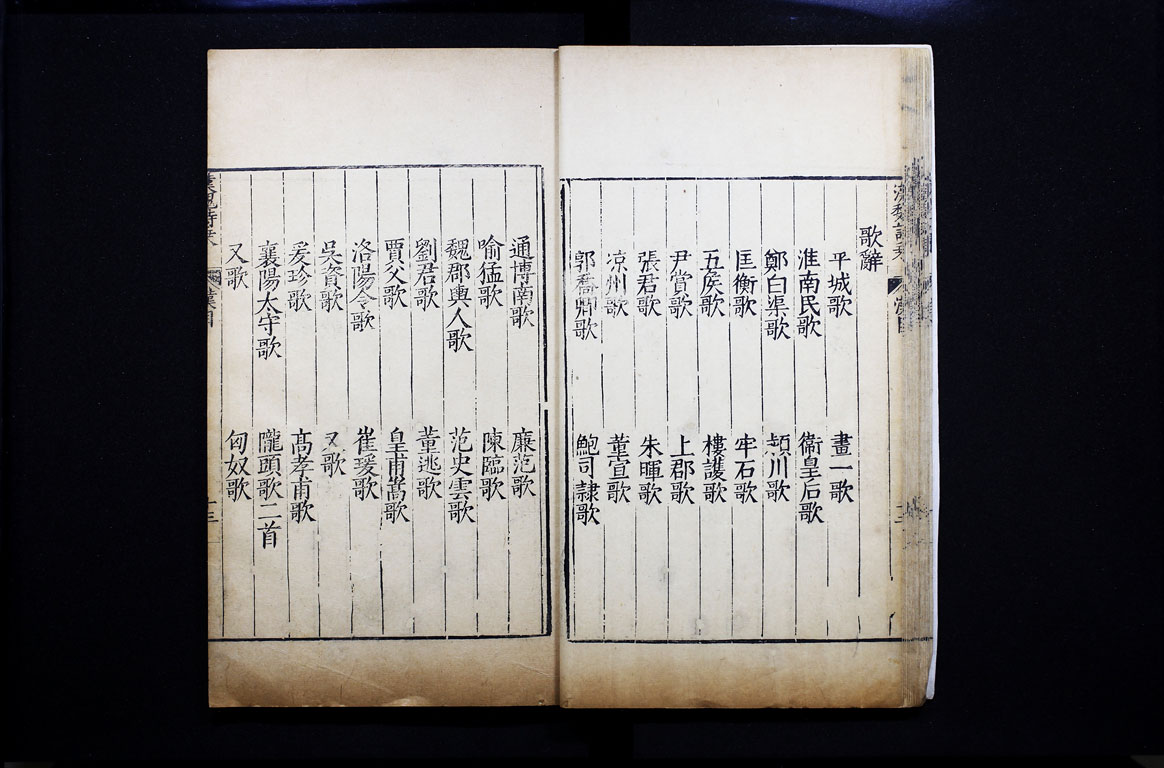 歌辭
平城歌 畫一歌
淮南民歌 衞皇后歌
鄭白渠歌 潁川歌
匡衡歌 牢石歌
五侯歌 樓護歌
尹賞歌 上郡歌
張君歌 朱暉歌
凉州歌 董宣歌
郭喬卿歌 鮑司隷歌
通博南歌 廉范歌
喻猛歌 陳臨歌
魏郡輿人歌 范史雲歌
劉君歌 董逃歌
賈父歌 皇甫嵩歌
洛陽令歌 崔瑗歌
吳資歌 又歌
爰珍歌 高孝甫歌
襄陽太守歌 隴頭歌二首
又歌 匈奴歌